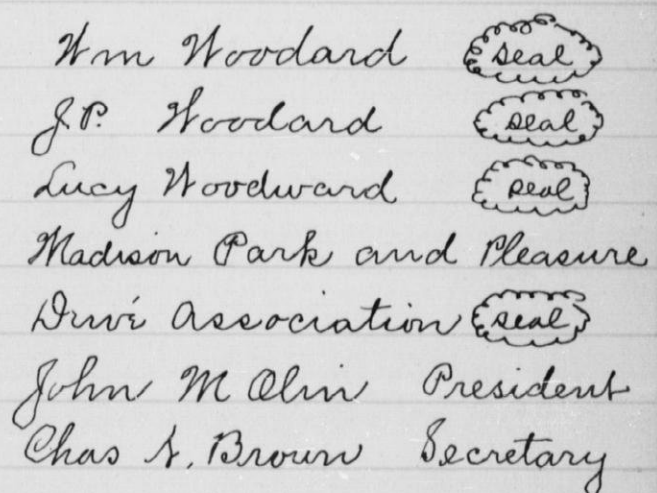 Wm Woodard seal
J.P. Woodard seal
Lucy Woodward seal
Madison Park and Pleasure
Drive Association seal
John M Olin President
Chas N. Brown Secretary